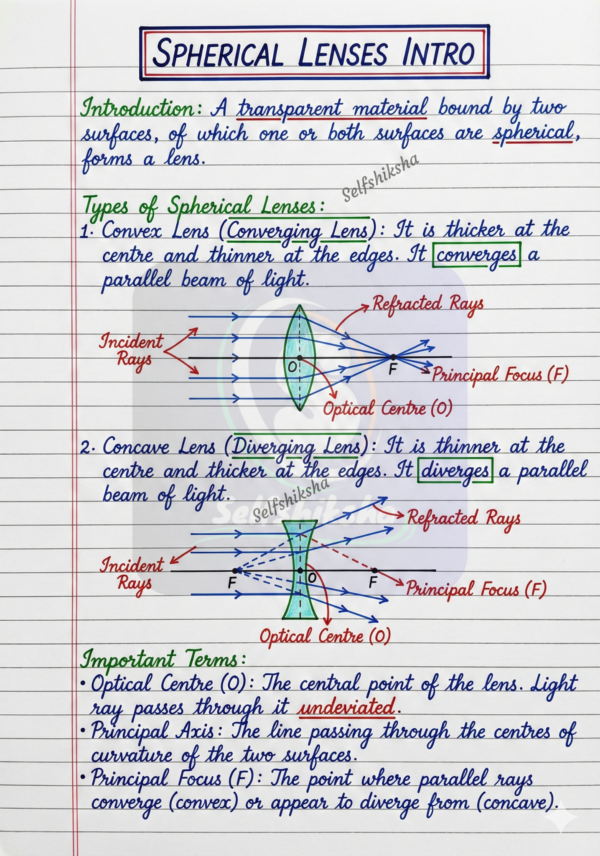 SPHERICAL LENSES INTRO
Introduction: A transparent material bound by two
surfaces, of which one or both surfaces are spherical,
forms a lens.
Selfshiksha
Types of Spherical Lenses:
1. Convex Lens (Converging Lens): It is thicker at the
centre and thinner at the edges. It converges a
parallel beam of light.
Refracted Rays
Incident
Rays
O
F
Principal Focus (F)
Optical Centre (O)
2. Concave Lens (Diverging Lens): It is thinner at the
centre and thicker at the edges. It diverges a parallel
beam of light.
Selfshiksha
Selfshiksha
Refracted Rays
Incident
Rays
F
O
F
Principal Focus (F)
Optical Centre (O)
Important Terms:
• Optical Centre (O): The central point of the lens. Light
ray passes through it undeviated.
• Principal Axis: The line passing through the centres of
curvature of the two surfaces.
• Principal Focus (F): The point where parallel rays
converge (convex) or appear to diverge from (concave).